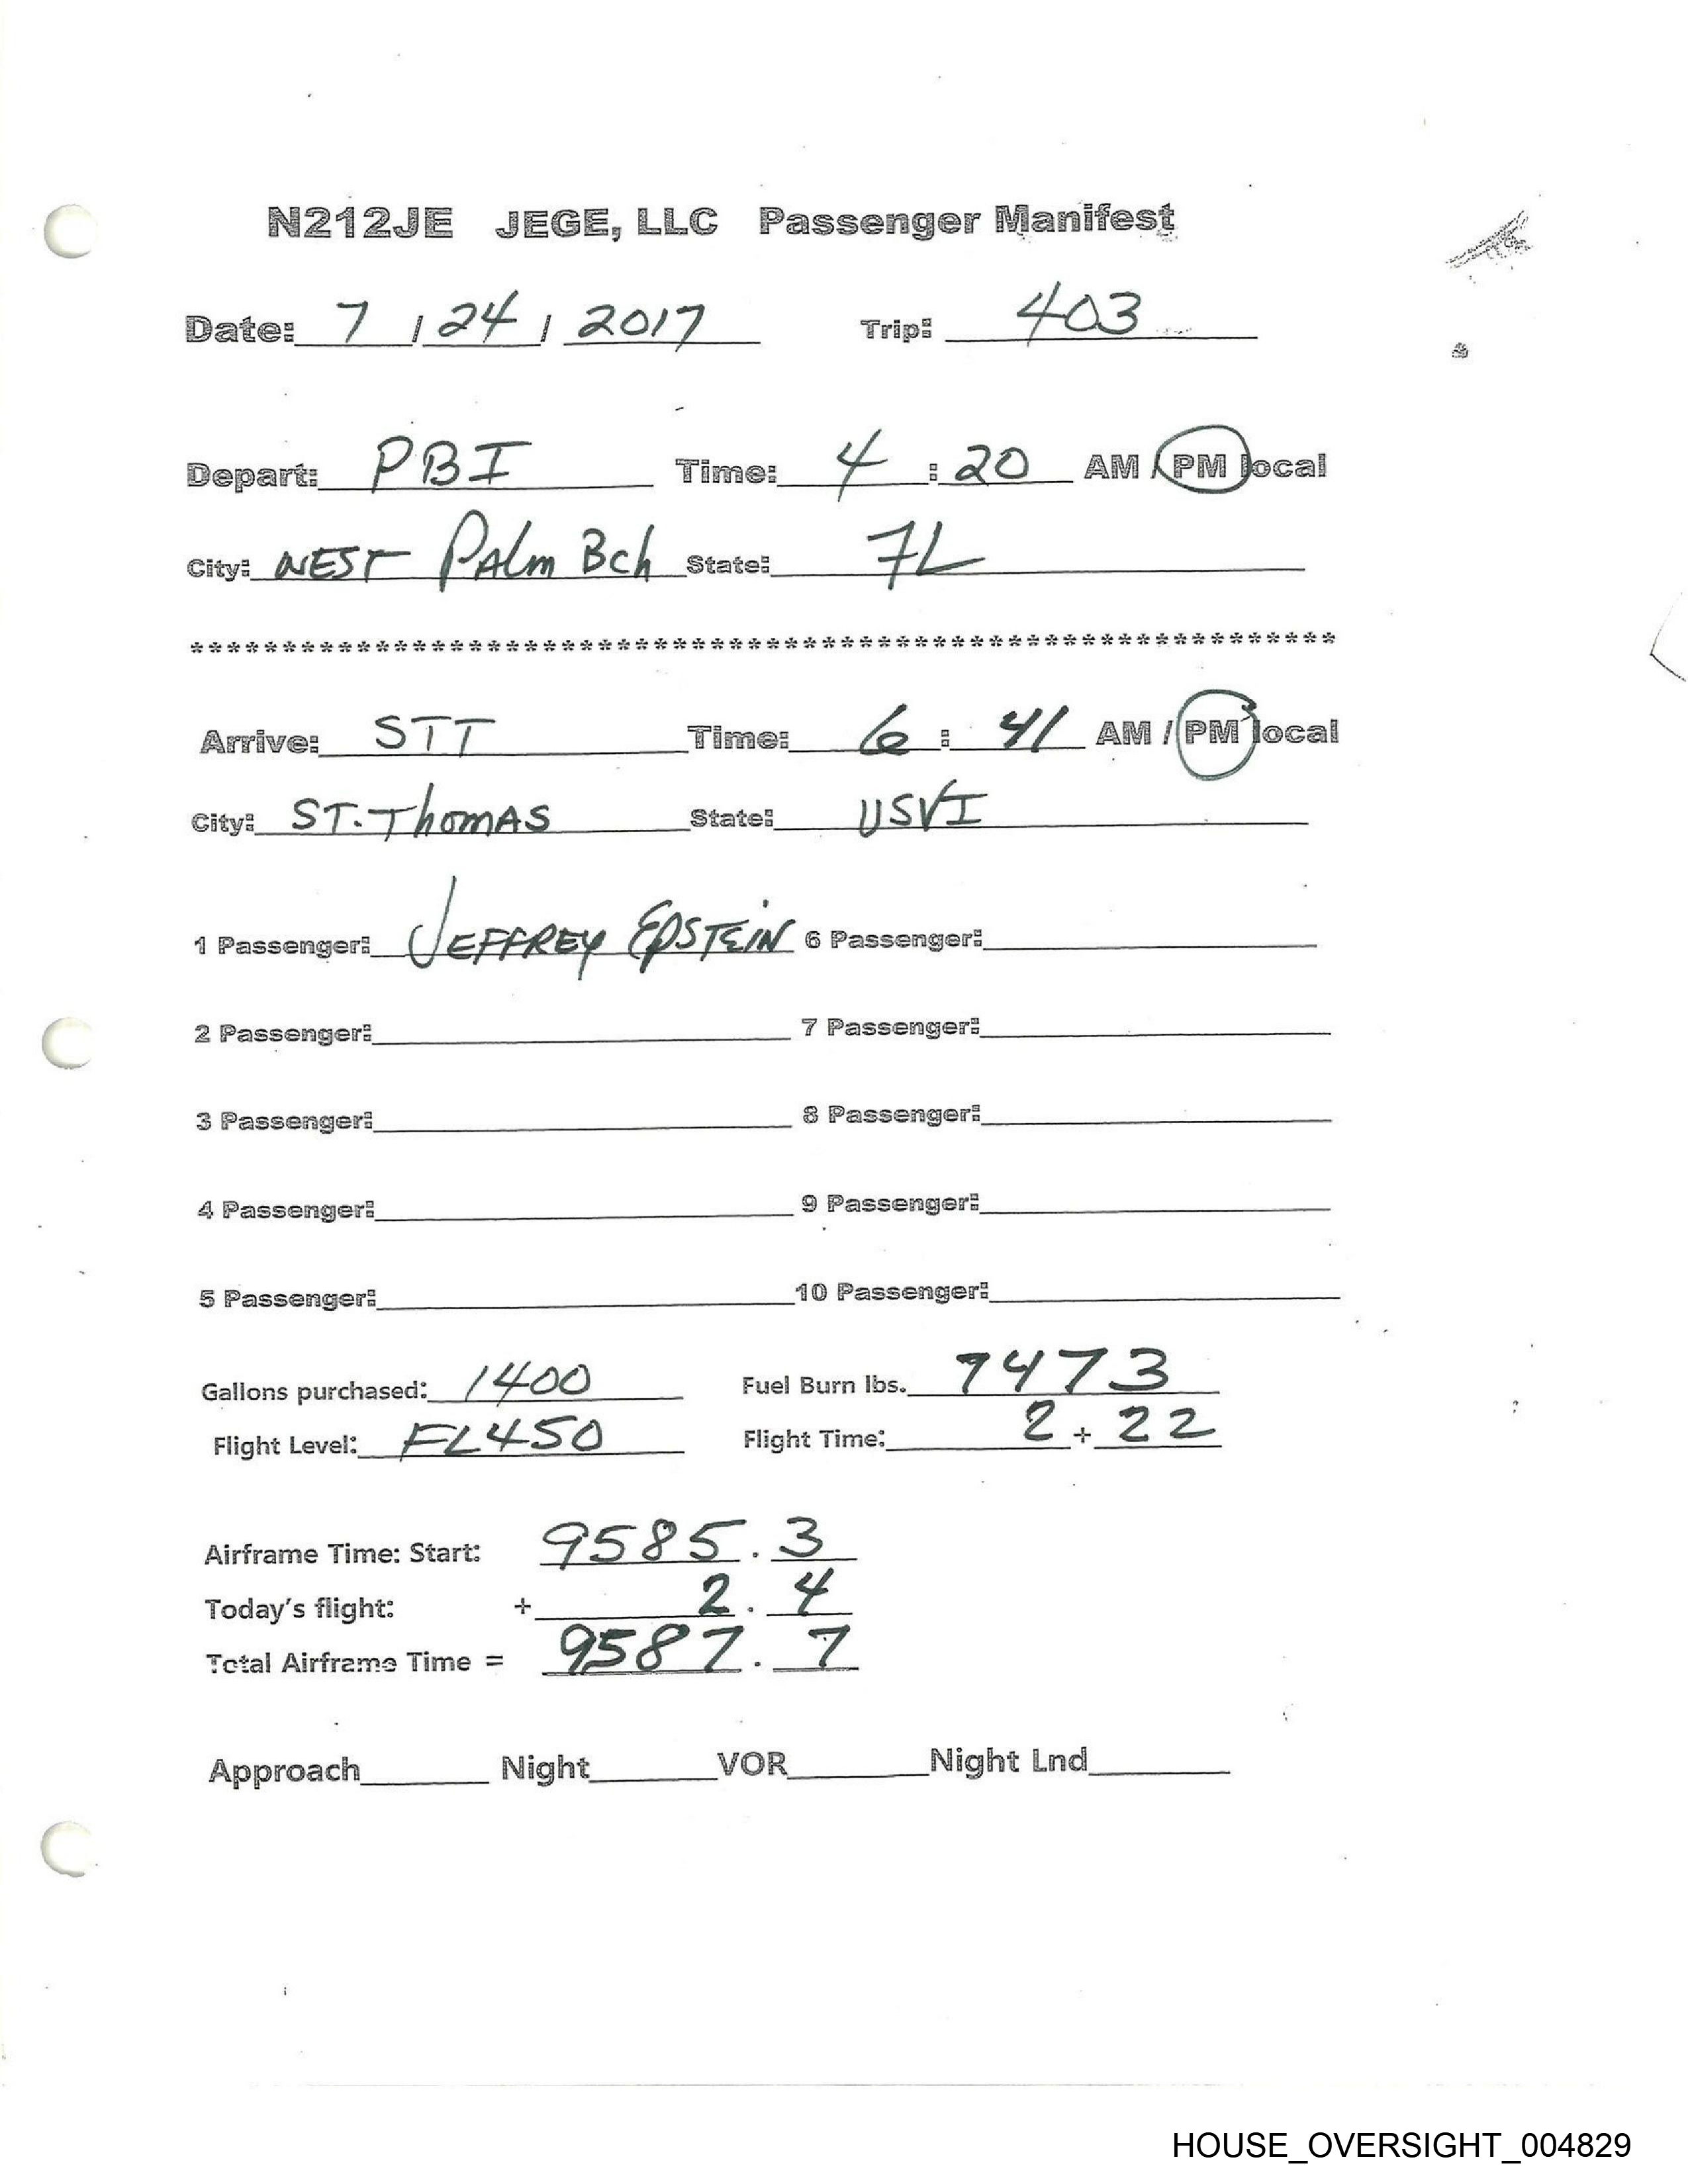 N212JE JEGE, LLC Passenger Manifest
Date: 7 / 24 / 2017 Trip: 403
Depart: PBI Time: 4 : 20 AM / PM local
City: WEST PAlm Bch State: FL
***************************************************************
Arrive: STT Time: 6 : 41 AM / PM local
City: ST. ThomAS State: USVI
1 Passenger: JEFFREY EPSTEIN 6 Passenger:
2 Passenger: 7 Passenger:
3 Passenger: 8 Passenger:
4 Passenger: 9 Passenger:
5 Passenger: 10 Passenger:
Gallons purchased: 1400 Fuel Burn lbs. 7473
Flight Level: FL450 Flight Time: 2 + 22
Airframe Time: Start: 9585 . 3
Today's flight: + 2 . 4
Total Airframe Time = 9587 . 7
Approach Night VOR Night Lnd
HOUSE_OVERSIGHT_004829